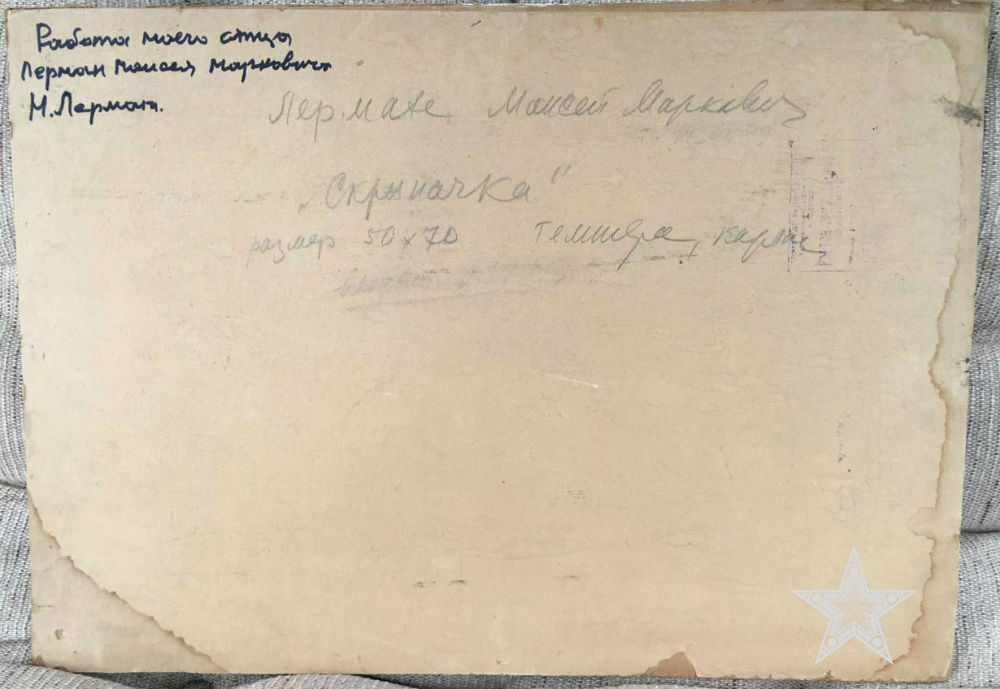 Работа моего отца
Лерман Моисея Марковича
М.Лерман.
Лерман Моисей Маркович
„Скрыпачка"
размер 50×70 темпера, картон